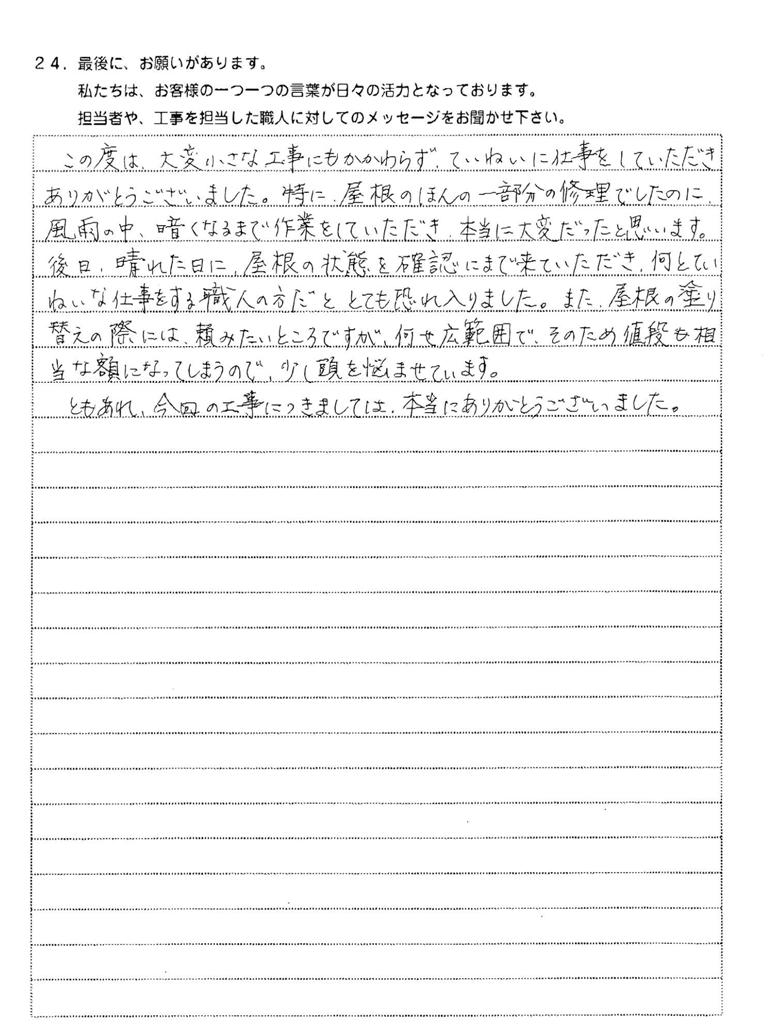 24. 最後に、お願いがあります。
私たちは、お客様の一つ一つの言葉が日々の活力となっております。
担当者や、工事を担当した職人に対してのメッセージをお聞かせ下さい。
この度は、大変小さな工事にもかかわらず、ていねいに仕事をしていただき
ありがとうございました。特に、屋根のほんの一部分の修理でしたのに、
風雨の中、暗くなるまで作業をしていただき、本当に大変だったと思います。
後日、晴れた日に、屋根の状態を確認にまで来ていただき、何とてい
ねいな仕事をする職人の方だと とても恐れ入りました。また、屋根の塗り
替えの際には、頼みたいところですが、何せ広範囲で、そのため値段も相
当な額になってしまうので、少し頭を悩ませています。
ともあれ、今回の工事につきましては、本当にありがとうございました。